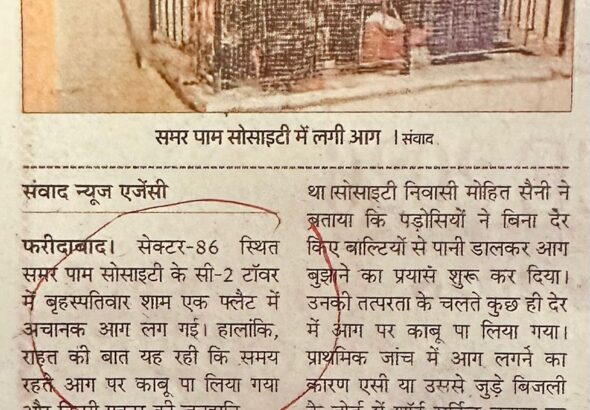 समर पाम सोसाइटी में लगी आग । संवाद
संवाद न्यूज एजेंसी
फरीदाबाद। सेक्टर-86 स्थित
समर पाम सोसाइटी के सी-2 टॉवर
में बृहस्पतिवार शाम एक फ्लैट में
अचानक आग लग गई। हालांकि,
राहत की बात यह रही कि समय
रहते आग पर काबू पा लिया गया
था।सोसाइटी निवासी मोहित सैनी ने
बताया कि पड़ोसियों ने बिना देर
किए बाल्टियों से पानी डालकर आग
बुझाने का प्रयास शुरू कर दिया।
उनकी तत्परता के चलते कुछ ही देर
में आग पर काबू पा लिया गया।
प्राथमिक जांच में आग लगने का
कारण एसी या उससे जुड़े बिजली